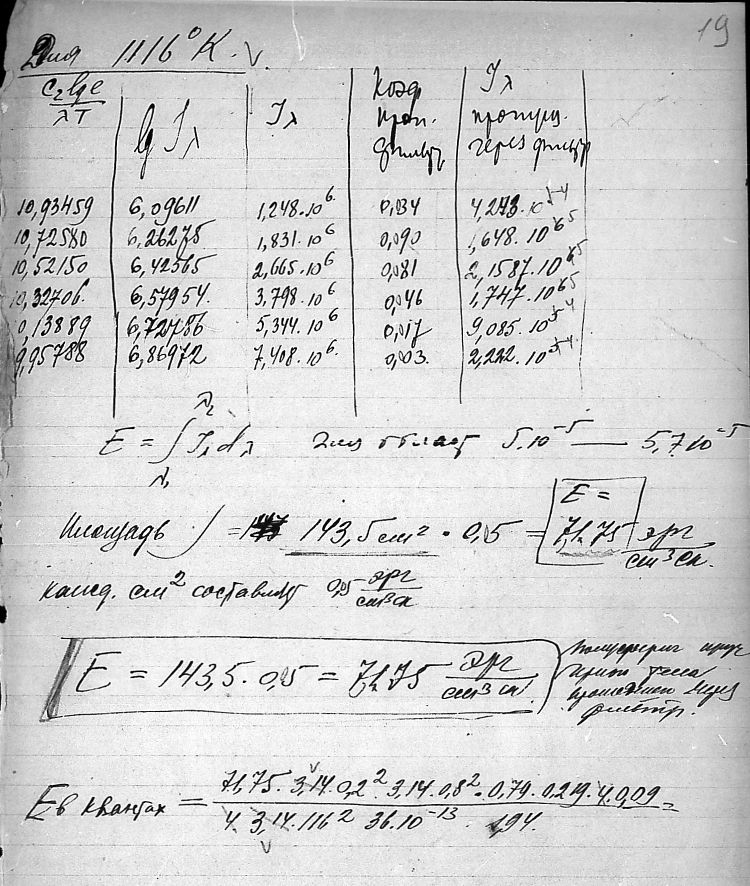 19
Для 1116°K.
c₂lge/λT | lg Jλ | Jλ | Коэф. проп. фильтр. | Jλ пропущ. через фильтр
10,93459 | 6,09611 | 1,248·10⁶ | 0,034 | 10⁴
10,72580 | 6,26275 | 1,831·10⁶ | 0,090 | 1,648·10⁵
10,52150 | 6,42565 | 2,665·10⁶ | 0,081 | 2,1587·10⁵
10,32706 | 6,57954 | 3,798·10⁶ | 0,046 | 1,747·10⁵
0,13889 | 6,72786 | 5,344·10⁶ | 0,017 | 9,085·10⁴
9,95788 | 6,86972 | 7,408·10⁶ | 0,003 | 2,222·10⁴
E = ∫ Jλ dλ для област 5·10⁻⁵ — 5,7·10⁻⁵
λ₂
λ₁
Площадь ∫ = 143,5 см² · 0,5 = E = 71,75 эрг/см³ск.
кажд. см² составляет 0,5 эрг/см³ск
E = 143,5 · 0,5 = 71,75 эрг/см³ск
через
фильтр.
E в квантах = 71,75 · 3,14 · 0,2² · 3,14 · 0,8² · 0,74 · 0,219 · 4 · 0,09 / 4 · 3,14 · 116² · 36·10⁻¹³ · 1,94 =